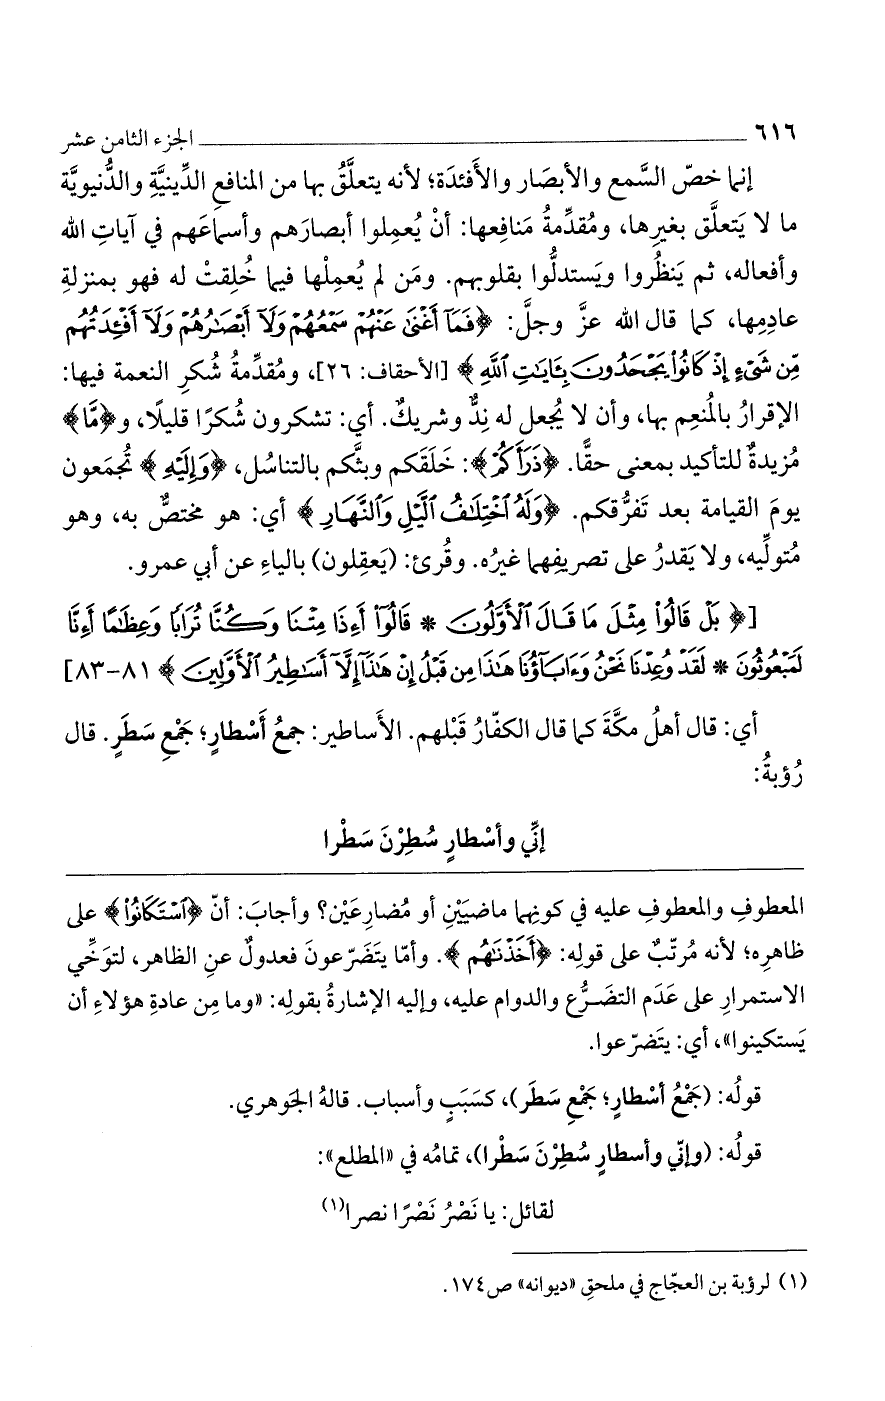 ٦١٦ الجزء الثامن عشر
إنما خصّ السَّمع والأبصَار والأَفئدَة؛ لأنه يتعلَّقُ بها من المنافعِ الدِّينيَّةِ والدُّنيويَّة
ما لا يَتعلَّق بغيرِها، ومُقدِّمةُ مَنافِعها: أنْ يُعمِلوا أبصارَهم وأسماعَهم في آياتِ الله
وأفعاله، ثم يَنظُروا ويَستدلُّوا بقلوبهم. ومَن لم يُعمِلْها فيما خُلِقتْ له فهو بمنزلةِ
عادِمِها، كما قال الله عزَّ وجلَّ: ﴿فَمَآ أَغْنَىٰ عَنْهُمْ سَمْعُهُمْ وَلَآ أَبْصَٰرُهُمْ وَلَآ أَفْـِٔدَتُهُم
مِّن شَىْءٍ إِذْ كَانُوا۟ يَجْحَدُونَ بِـَٔايَٰتِ ٱللَّهِ﴾ [الأحقاف: ٢٦]، ومُقدِّمةُ شُكرِ النعمة فيها:
الإقرارُ بالمُنعِم بها، وأن لا يُجعل له نِدٌّ وشريكٌ. أي: تشكرون شُكرًا قليلًا، و﴿مَّا﴾
مُزيدةٌ للتأكيد بمعنى حقًّا. ﴿ذَرَأَكُمْ﴾: خَلَقَكم وبثَّكم بالتناسُل، ﴿وَإِلَيْهِ﴾ تُجمَعون
يومَ القيامة بعد تَفرُّقكم. ﴿وَلَهُ ٱخْتِلَٰفُ ٱلَّيْلِ وَٱلنَّهَارِ﴾ أي: هو مختصٌّ به، وهو
مُتولِّيه، ولا يَقدرُ على تصريفِهما غيرُه. وقُرئ: (يَعقِلون) بالياءِ عن أبي عمرو.
[﴿بَلْ قَالُوا۟ مِثْلَ مَا قَالَ ٱلْأَوَّلُونَ * قَالُوٓا۟ أَءِذَا مِتْنَا وَكُنَّا تُرَابًا وَعِظَٰمًا أَءِنَّا
لَمَبْعُوثُونَ * لَقَدْ وُعِدْنَا نَحْنُ وَءَابَآؤُنَا هَٰذَا مِن قَبْلُ إِنْ هَٰذَآ إِلَّآ أَسَٰطِيرُ ٱلْأَوَّلِينَ﴾ ٨١-٨٣]
أي: قال أهلُ مكَّةَ كما قال الكفّارُ قَبْلهم. الأساطير: جمعُ أَسْطارٍ؛ جَمْعِ سَطَرٍ. قال
رُؤبةُ:
إنِّي وأسْطارٍ سُطِرْنَ سَطْرا
المعطوفِ والمعطوفِ عليه في كونِهما ماضيَيْنِ أو مُضارِعَيْن؟ وأجابَ: أنّ ﴿ٱسْتَكَانُوا۟﴾ على
ظاهرِه؛ لأنه مُرتّبٌ على قولِه: ﴿أَخَذْنَٰهُم﴾. وأمّا يتَضَرّعونَ فعدولٌ عنِ الظاهر، لتوَخِّي
الاستمرارِ على عَدَم التضَرُّع والدوام عليه، وإليه الإشارةُ بقولِه: «وما مِن عادةِ هؤلاءِ أن
يَستكينوا»، أي: يتضَرّعوا.
قولُه: (جَمْعُ أسْطارٍ؛ جَمْعِ سَطَر)، كسَبَبٍ وأسباب. قالهُ الجَوهري.
قولُه: (وإنّي وأسطارٍ سُطِرْنَ سَطْرا)، تمامُه في «المطلع»:
لقائل: يا نَصْرُ نَصْرًا نصرا(١)
(١) لرؤبة بن العجّاج في ملحقِ «ديوانه» ص١٧٤.